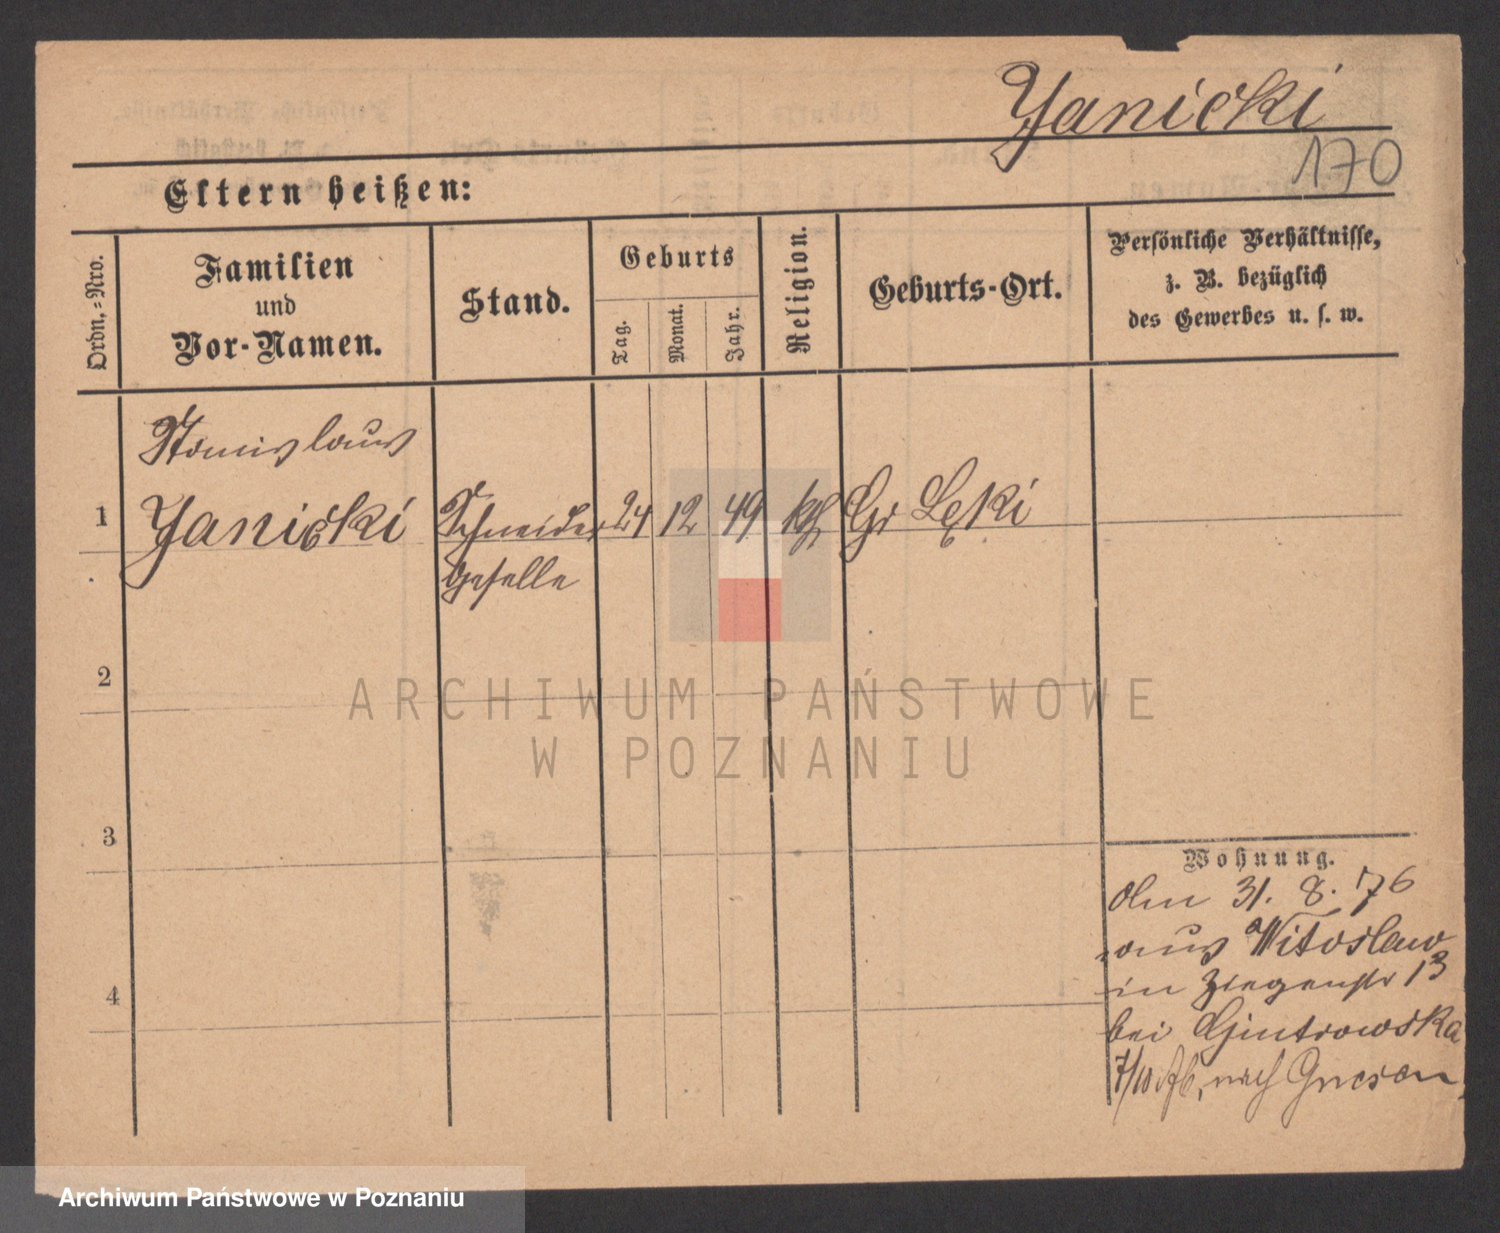 Janicki
170
Eltern heißen:
Ordn.-Nro.
Familien
und
Vor-Namen.
Stand.
Geburts
Tag.
Monat.
Jahr.
Religion.
Geburts-Ort.
Persönliche Verhältnisse,
z. B. bezüglich
des Gewerbes u. s. w.
Stanislaus
1 Janicki Schneider 24 12 49 kth Gr Lęki
Geselle
2
3
4
Wohnung.
Am 31. 8. 76
aus Witoslaw
in Ziegenstr 13
bei Gintrowska
7/10 Ab, nach Gnesen
ARCHIWUM PAŃSTWOWE
W POZNANIU
Archiwum Państwowe w Poznaniu